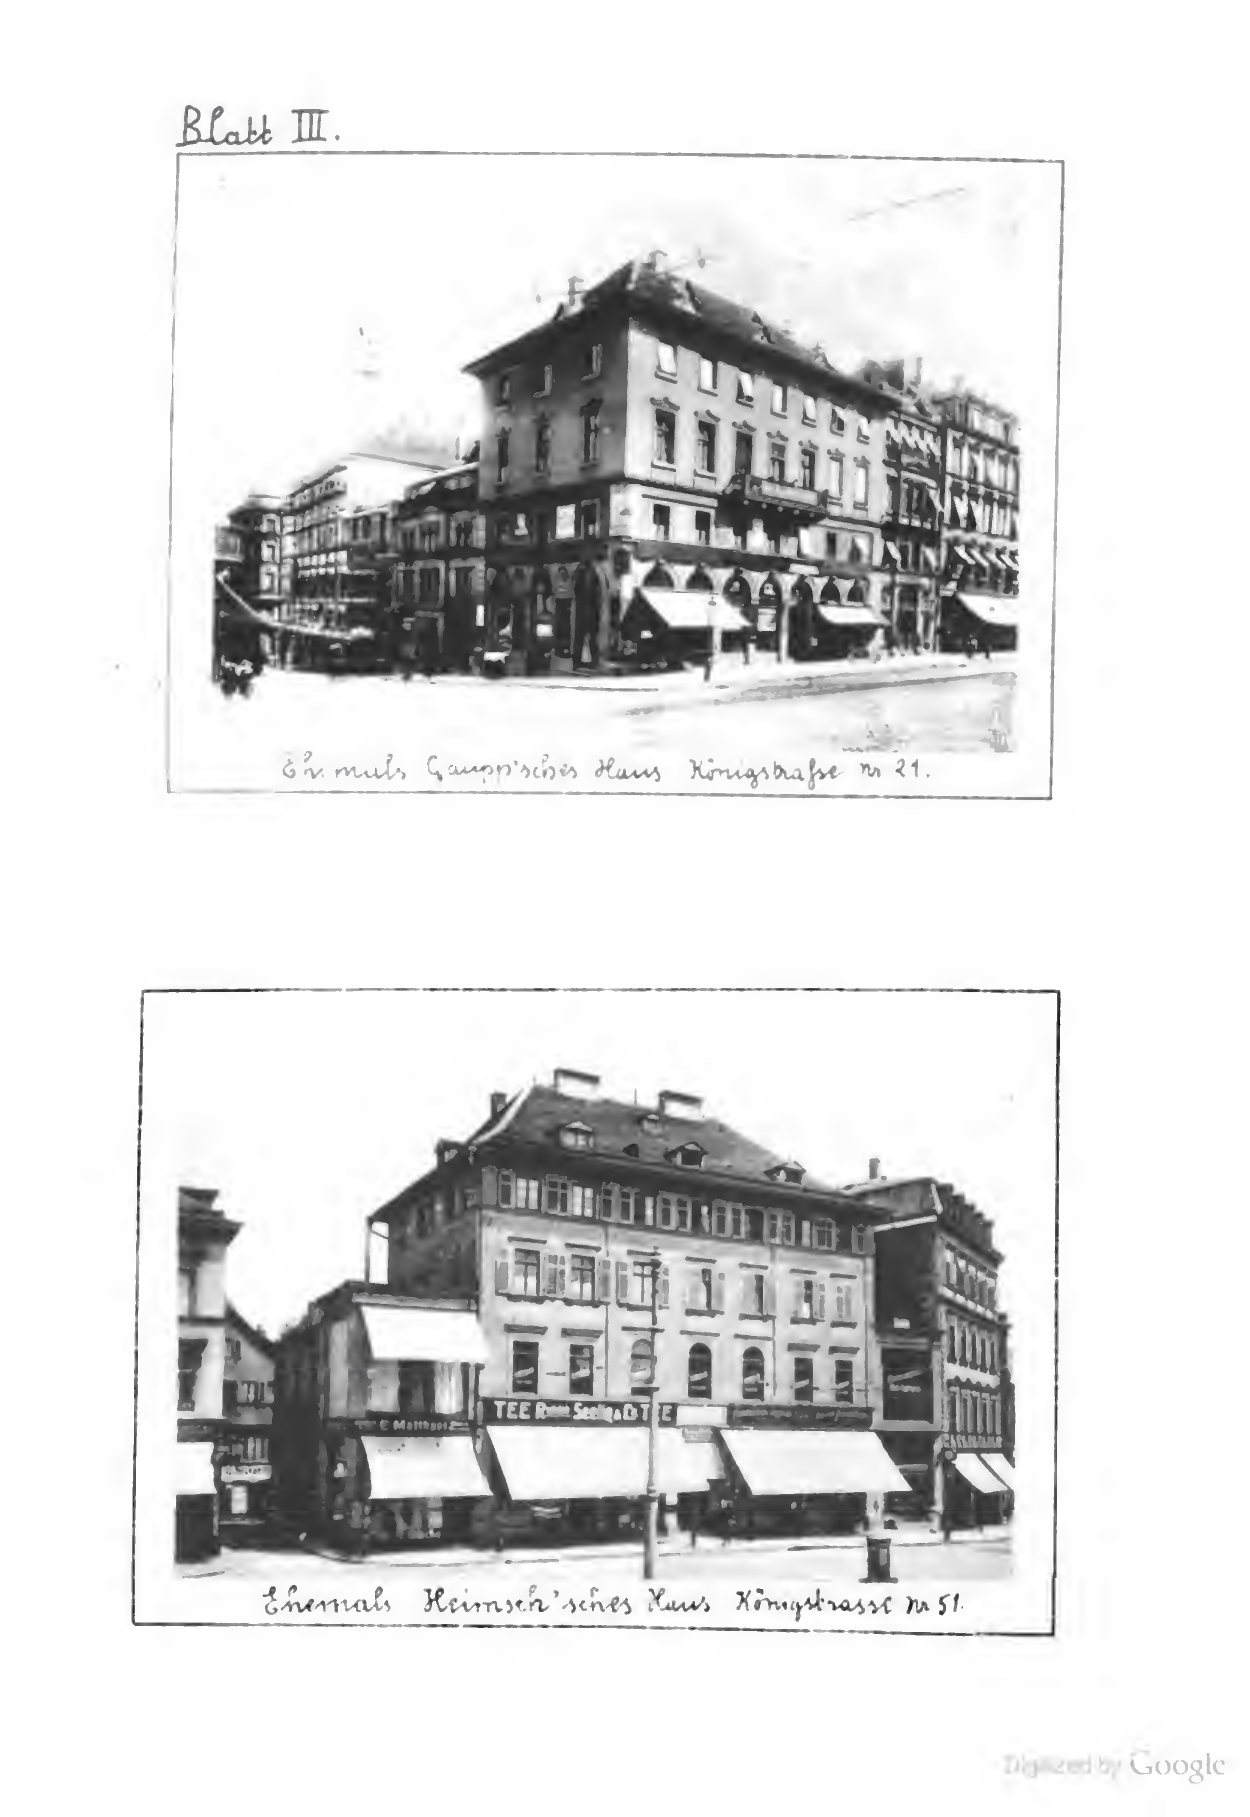 Blatt III.
Ehemals Gaupp'sches Haus Königstraße nr 21.
E Matthaei
TEE Seelig & Co TEE
Ehemals Heimsch'sches Haus Königstrasse nr 51.
Digitized by Google